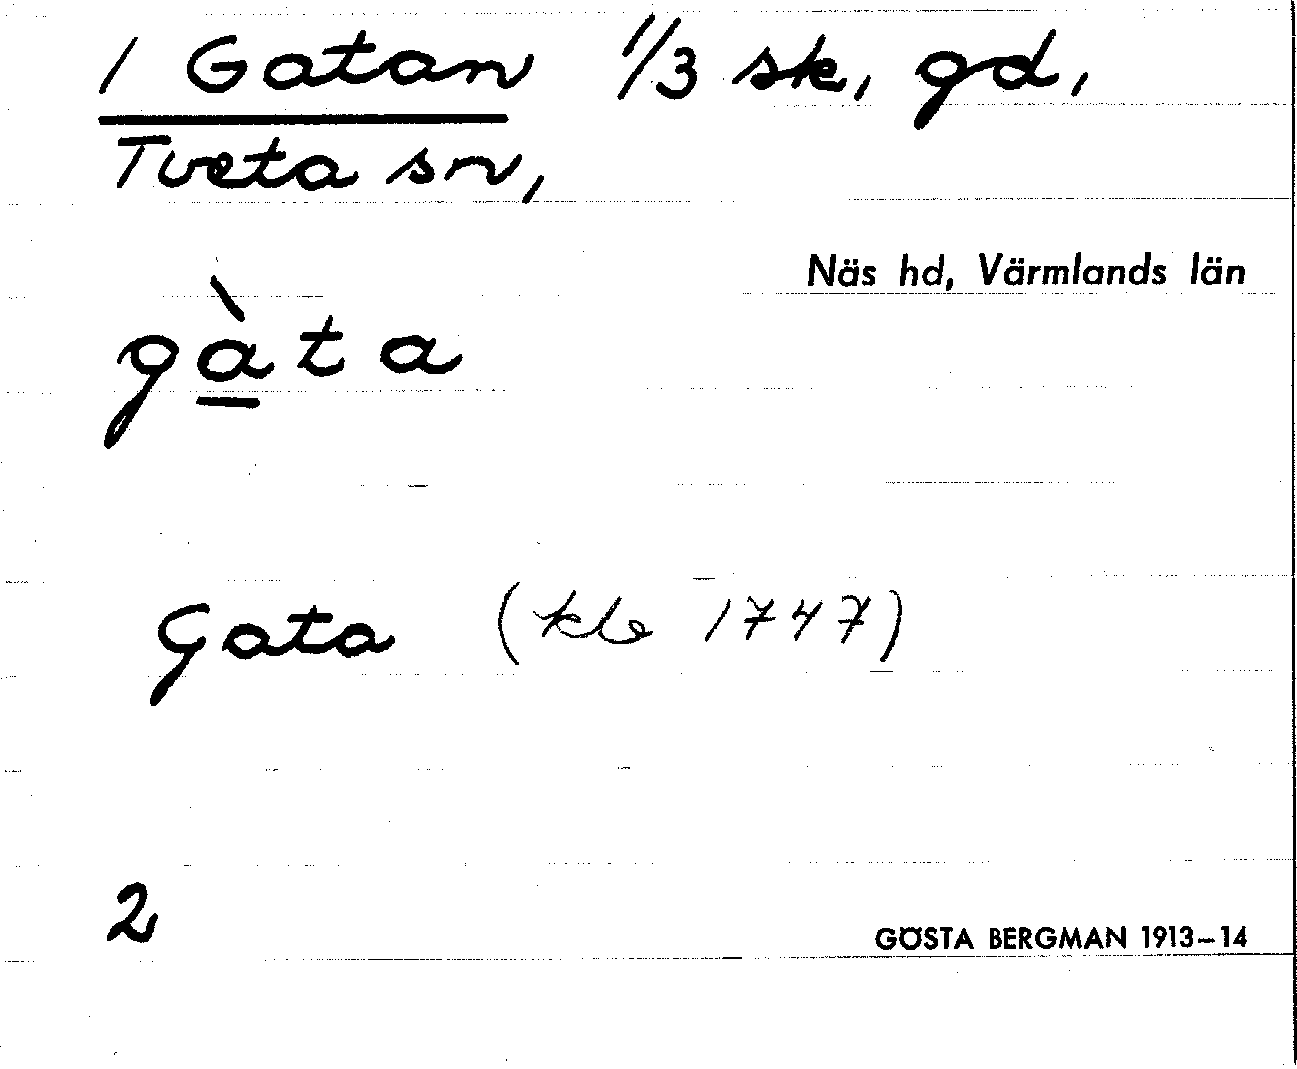 1 Gatan 1/3 sk, gd,
Tveta sn,
Näs hd, Värmlands län
gàta
Gata (klb 1747)
2
GÖSTA BERGMAN 1913–14